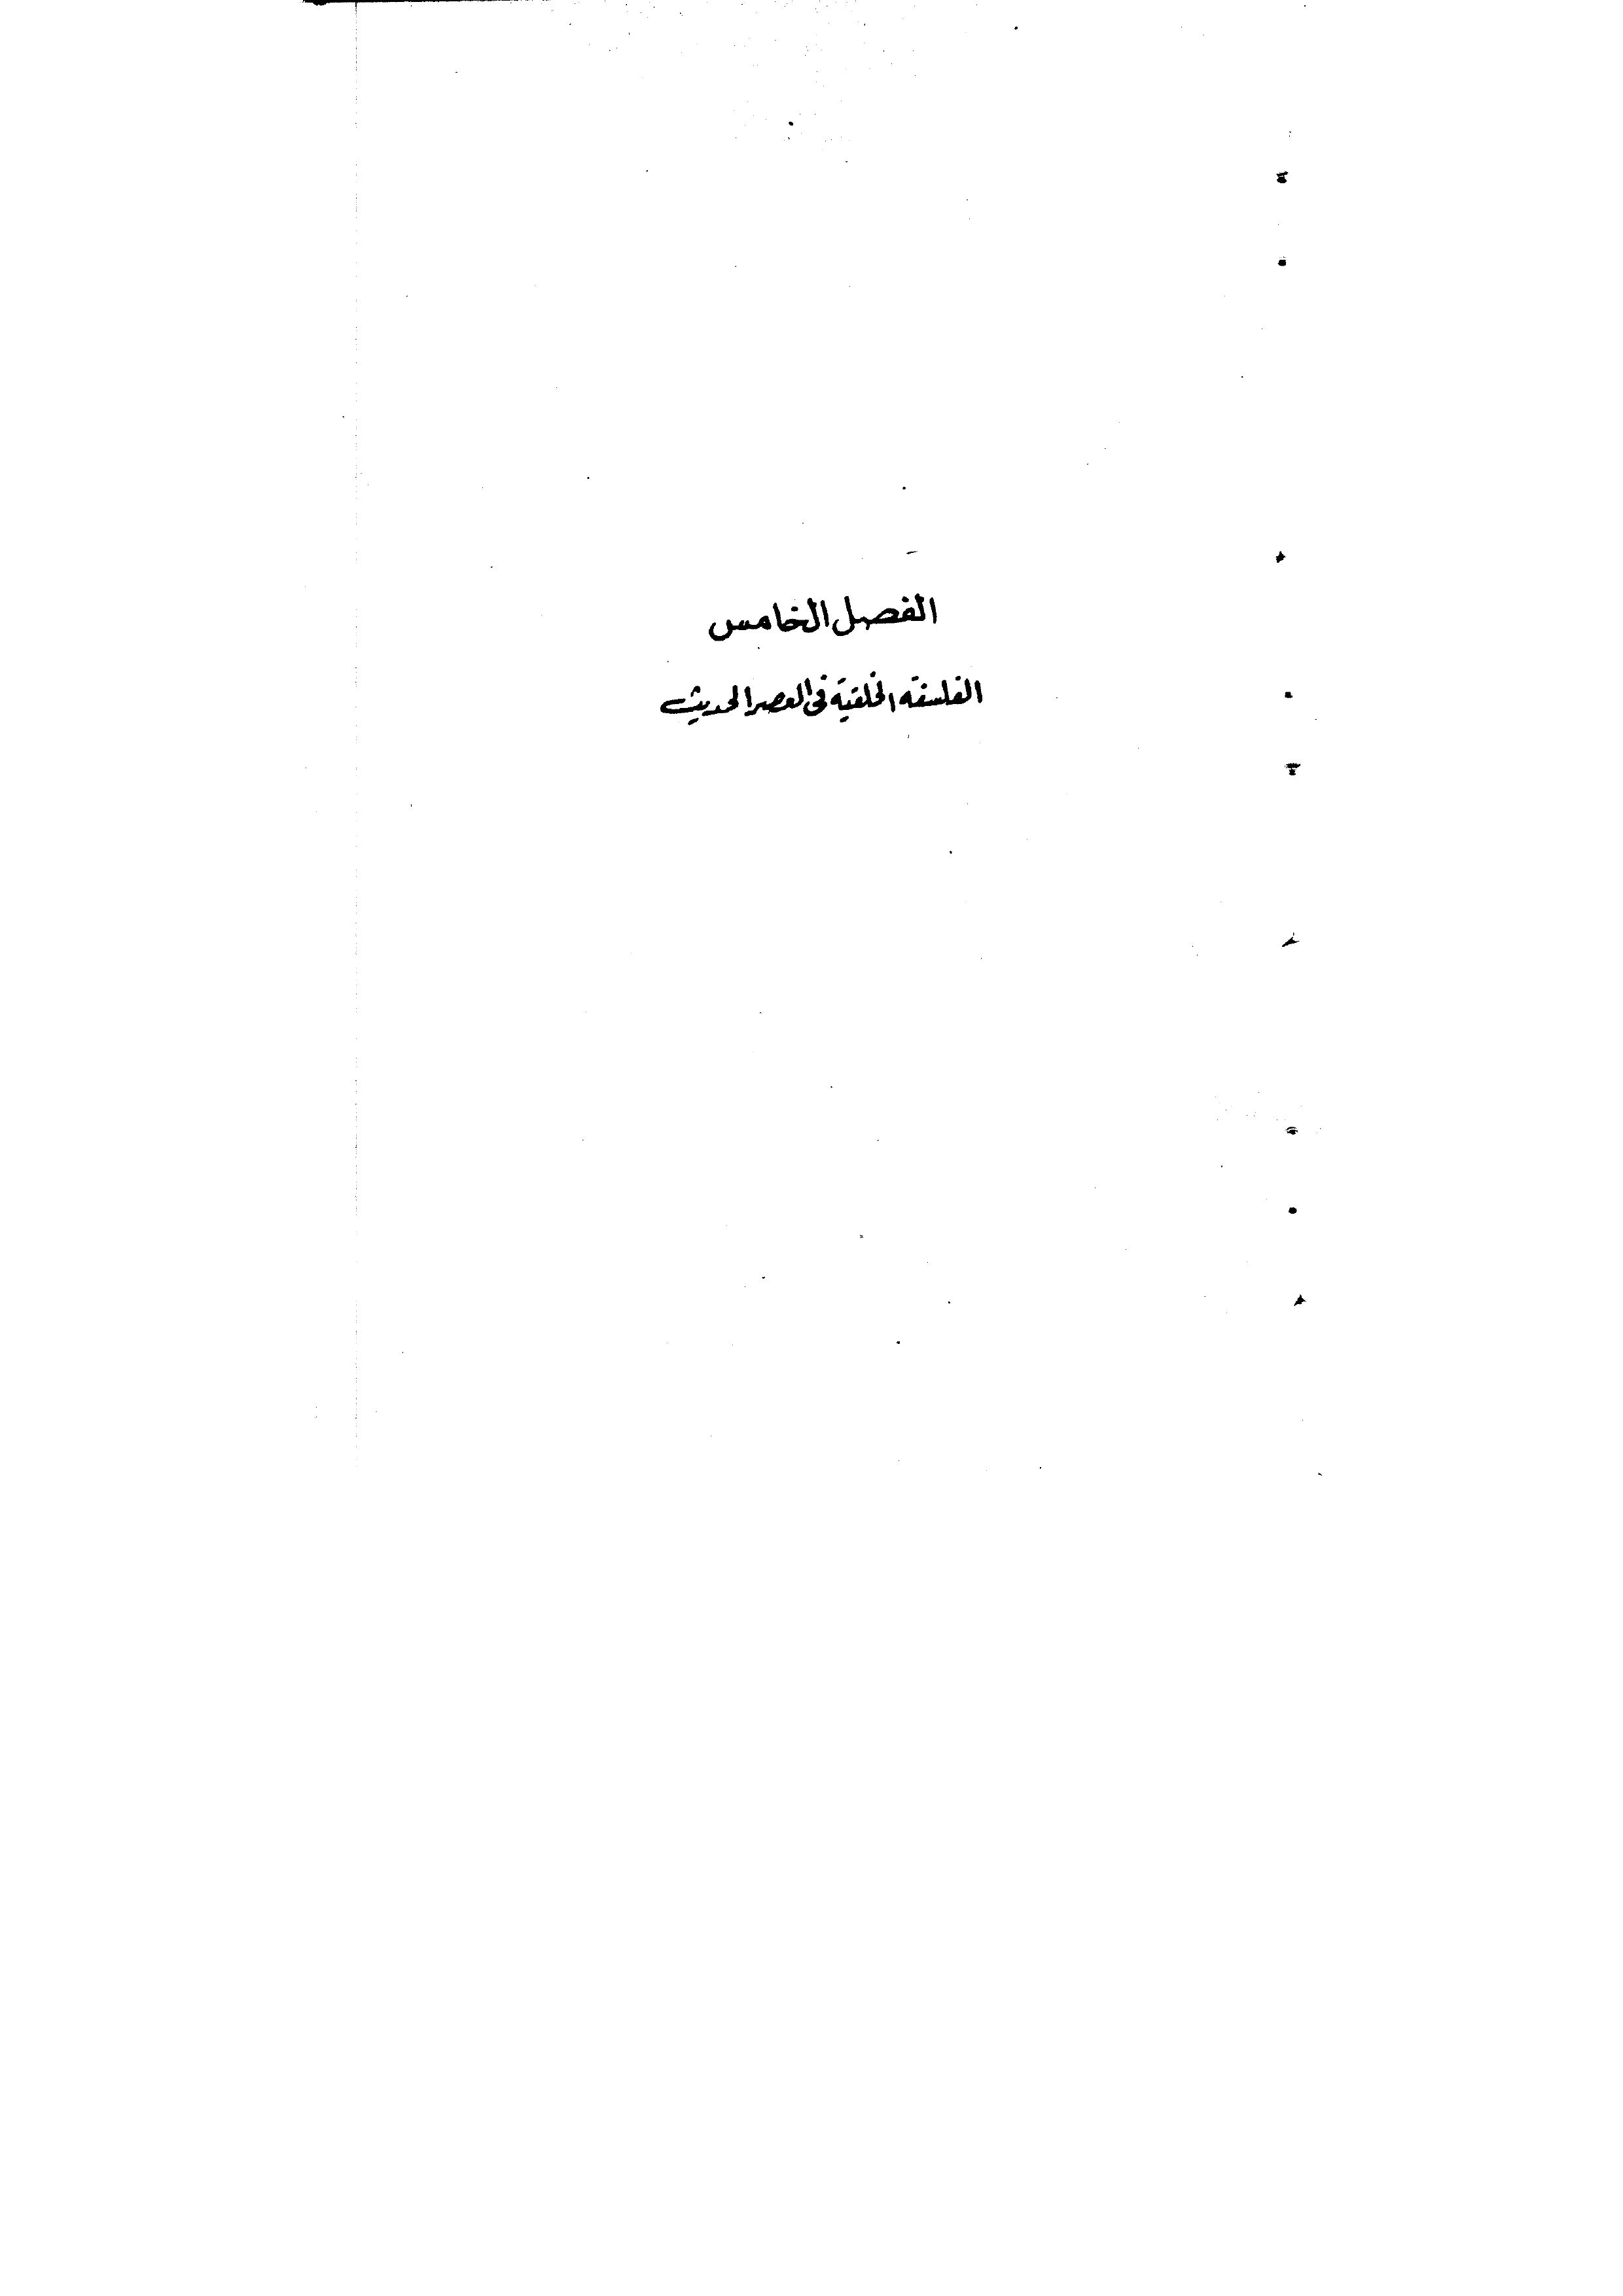 الفصل الخامس
الفلسفة الخلقية فى العصر الحديث